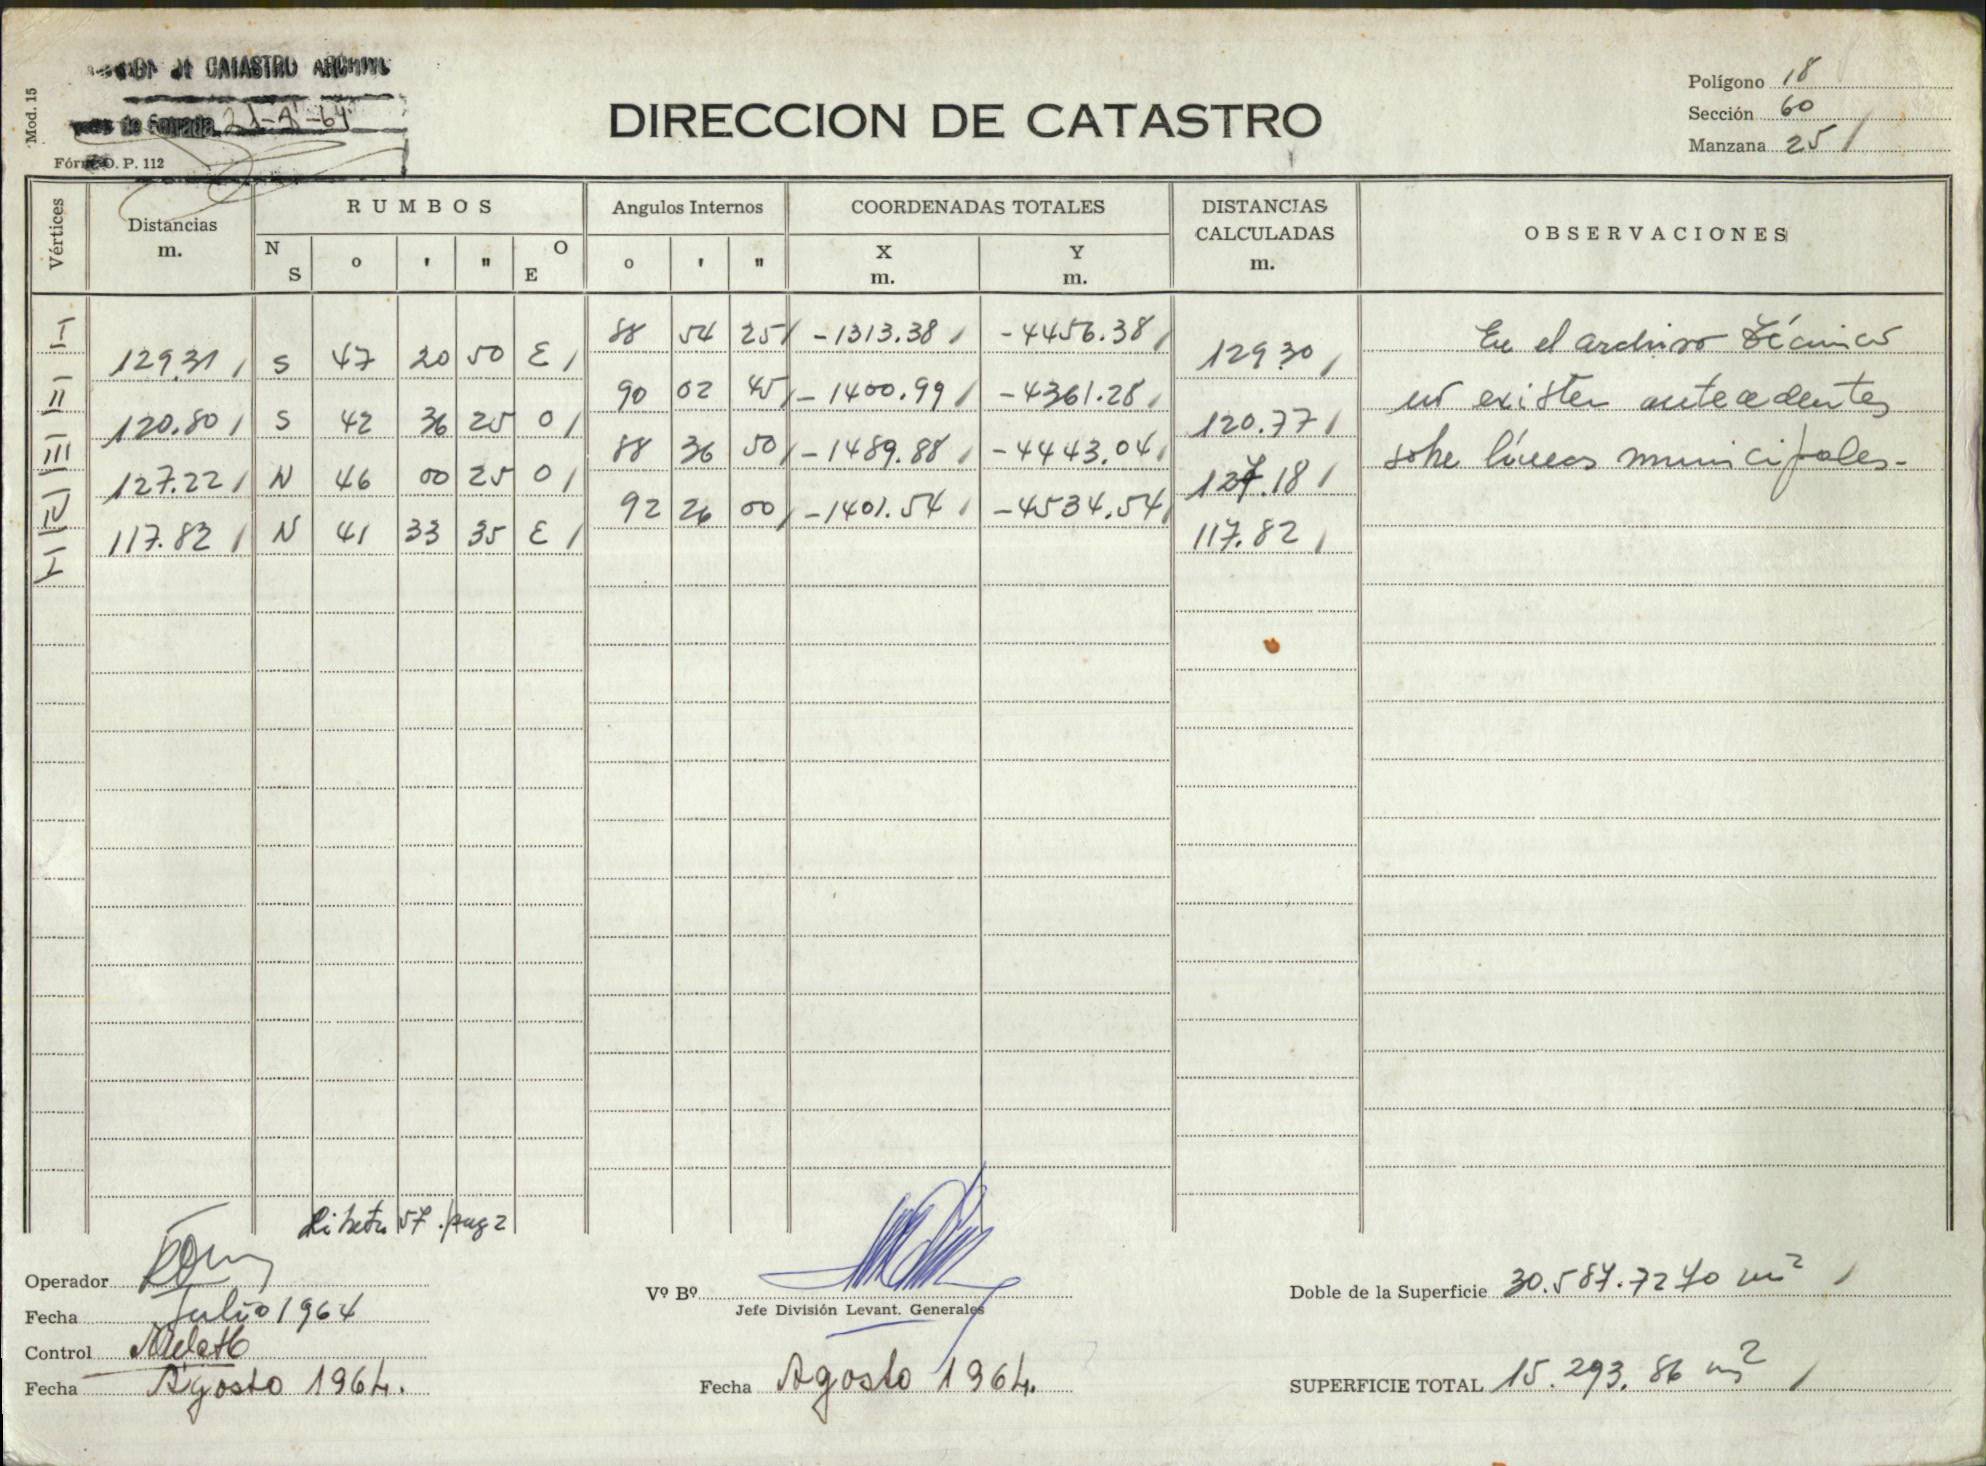 DE CATASTRO ARCHIVO
de Entrada 21-A-64
Mod. 15
O. P. 112
DIRECCION DE CATASTRO
Polígono 18
Sección 60
Manzana 25 /
Vértices
Distancias m.
RUMBOS
N S o ' " O E
Angulos Internos
o ' "
COORDENADAS TOTALES
X m. Y m.
DISTANCIAS CALCULADAS m.
OBSERVACIONES
I 88 54 25 / -1313.38 / -4456.38 /
129.31 / S 47 20 50 E / 129.30 /
II 90 02 45 / -1400.99 / -4361.28 /
120.80 / S 42 36 25 O / 120.77 /
III 88 36 50 / -1489.88 / -4443.04 /
127.22 / N 46 00 25 O / 127.18 /
IV 92 26 00 / -1401.54 / -4534.54 /
117.82 / N 41 33 35 E / 117.82 /
I
En el archivo técnico
no existen antecedentes
sobre líneas municipales.-
Libreta 57. pag 2
Operador
Fecha Julio 1964
Control
Fecha Agosto 1964.
Vº Bº
Jefe División Levant. Generales
Fecha Agosto 1964.
Doble de la Superficie 30.587.7270 m² /
SUPERFICIE TOTAL 15.293.86 m² /